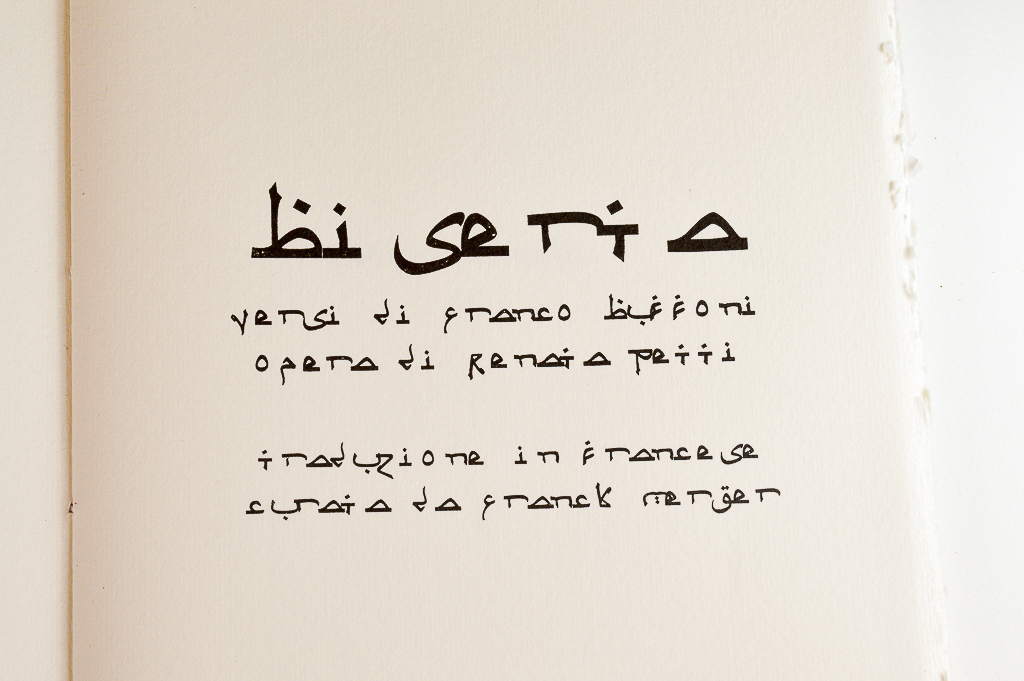 biserta
versi di franco buffoni
opera di renata petti
traduzione in francese
curata da franck merger